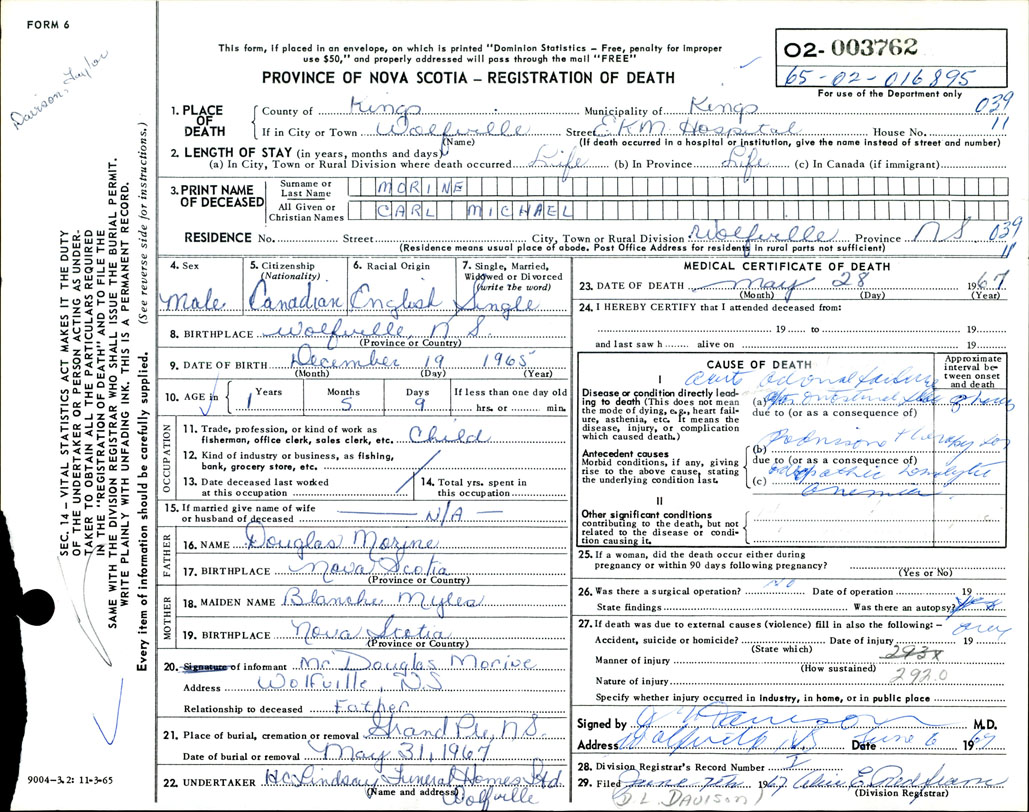 FORM 6
Davison, Taylor
This form, if placed in an envelope, on which is printed "Dominion Statistics – Free, penalty for improper
use $50," and properly addressed will pass through the mail "FREE"
PROVINCE OF NOVA SCOTIA – REGISTRATION OF DEATH
02- 003762
65-02-016895
For use of the Department only
039
11
1. PLACE OF DEATH
County of Kings Municipality of Kings
If in City or Town Wolfville Street EKM Hospital House No.
(Name) (If death occurred in a hospital or institution, give the name instead of street and number)
2. LENGTH OF STAY (in years, months and days)
(a) In City, Town or Rural Division where death occurred Life (b) In Province Life (c) In Canada (if immigrant)
3. PRINT NAME OF DECEASED
Surname or Last Name MORINE
All Given or Christian Names CARL MICHAEL
RESIDENCE No. Street City, Town or Rural Division Wolfville Province NS 039
(Residence means usual place of abode. Post Office Address for residents in rural parts not sufficient) 11
4. Sex Male
5. Citizenship (Nationality) Canadian
6. Racial Origin English
7. Single, Married, Widowed or Divorced (write the word) Single
8. BIRTHPLACE Wolfville, N.S.
(Province or Country)
9. DATE OF BIRTH December 19 1965
(Month) (Day) (Year)
10. AGE in 1 Years Months 5 Days 9 If less than one day old hrs. or min.
OCCUPATION
11. Trade, profession, or kind of work as fisherman, office clerk, sales clerk, etc. Child
12. Kind of industry or business, as fishing, bank, grocery store, etc.
13. Date deceased last worked at this occupation
14. Total yrs. spent in this occupation
15. If married give name of wife or husband of deceased N/A
FATHER
16. NAME Douglas Morine
17. BIRTHPLACE Nova Scotia
(Province or Country)
MOTHER
18. MAIDEN NAME Blanche Myles
19. BIRTHPLACE Nova Scotia
(Province or Country)
20. Signature of informant Mr. Douglas Morine
Address Wolfville, N.S
Relationship to deceased Father
21. Place of burial, cremation or removal Grand Pre, N.S.
Date of burial or removal May 31, 1967
22. UNDERTAKER H.C. Lindsay Funeral Homes Ltd.
(Name and address) Wolfville
MEDICAL CERTIFICATE OF DEATH
23. DATE OF DEATH May 28 1967
(Month) (Day) (Year)
24. I HEREBY CERTIFY that I attended deceased from:
19 to 19
and last saw h alive on 19
CAUSE OF DEATH
Approximate interval between onset and death
I
Disease or condition directly leading to death (This does not mean the mode of dying, e.g., heart failure, asthenia, etc. It means the disease, injury, or complication which caused death.)
acute adrenal failure
(a)
due to (or as a consequence of)
Antecedent causes
Morbid conditions, if any, giving rise to the above cause, stating the underlying condition last.
(b) therapy for
due to (or as a consequence of)
(c) idiopathic hemolytic
anemia
II
Other significant conditions contributing to the death, but not related to the disease or condition causing it.
25. If a woman, did the death occur either during
pregnancy or within 90 days following pregnancy?
(Yes or No)
26. Was there a surgical operation? No Date of operation 19
State findings Was there an autopsy?
27. If death was due to external causes (violence) fill in also the following:–
Accident, suicide or homicide? Date of injury 19
(State which) 293X
Manner of injury
(How sustained) 292.0
Nature of injury
Specify whether injury occurred in industry, in home, or in public place
Signed by Davison M.D.
Address Wolfville NS Date June 6 1967
28. Division Registrar's Record Number
29. Filed June 7th 1967
(Division Registrar)
(D L DAVISON)
SEC. 14 – VITAL STATISTICS ACT MAKES IT THE DUTY
OF THE UNDERTAKER OR PERSON ACTING AS UNDER-
TAKER TO OBTAIN ALL THE PARTICULARS REQUIRED
IN THE "REGISTRATION OF DEATH" AND TO FILE THE
SAME WITH THE DIVISION REGISTRAR WHO SHALL ISSUE THE BURIAL PERMIT.
WRITE PLAINLY WITH UNFADING INK. THIS IS A PERMANENT RECORD.
Every item of information should be carefully supplied. (See reverse side for instructions.)
9004-3.2: 11-3-65